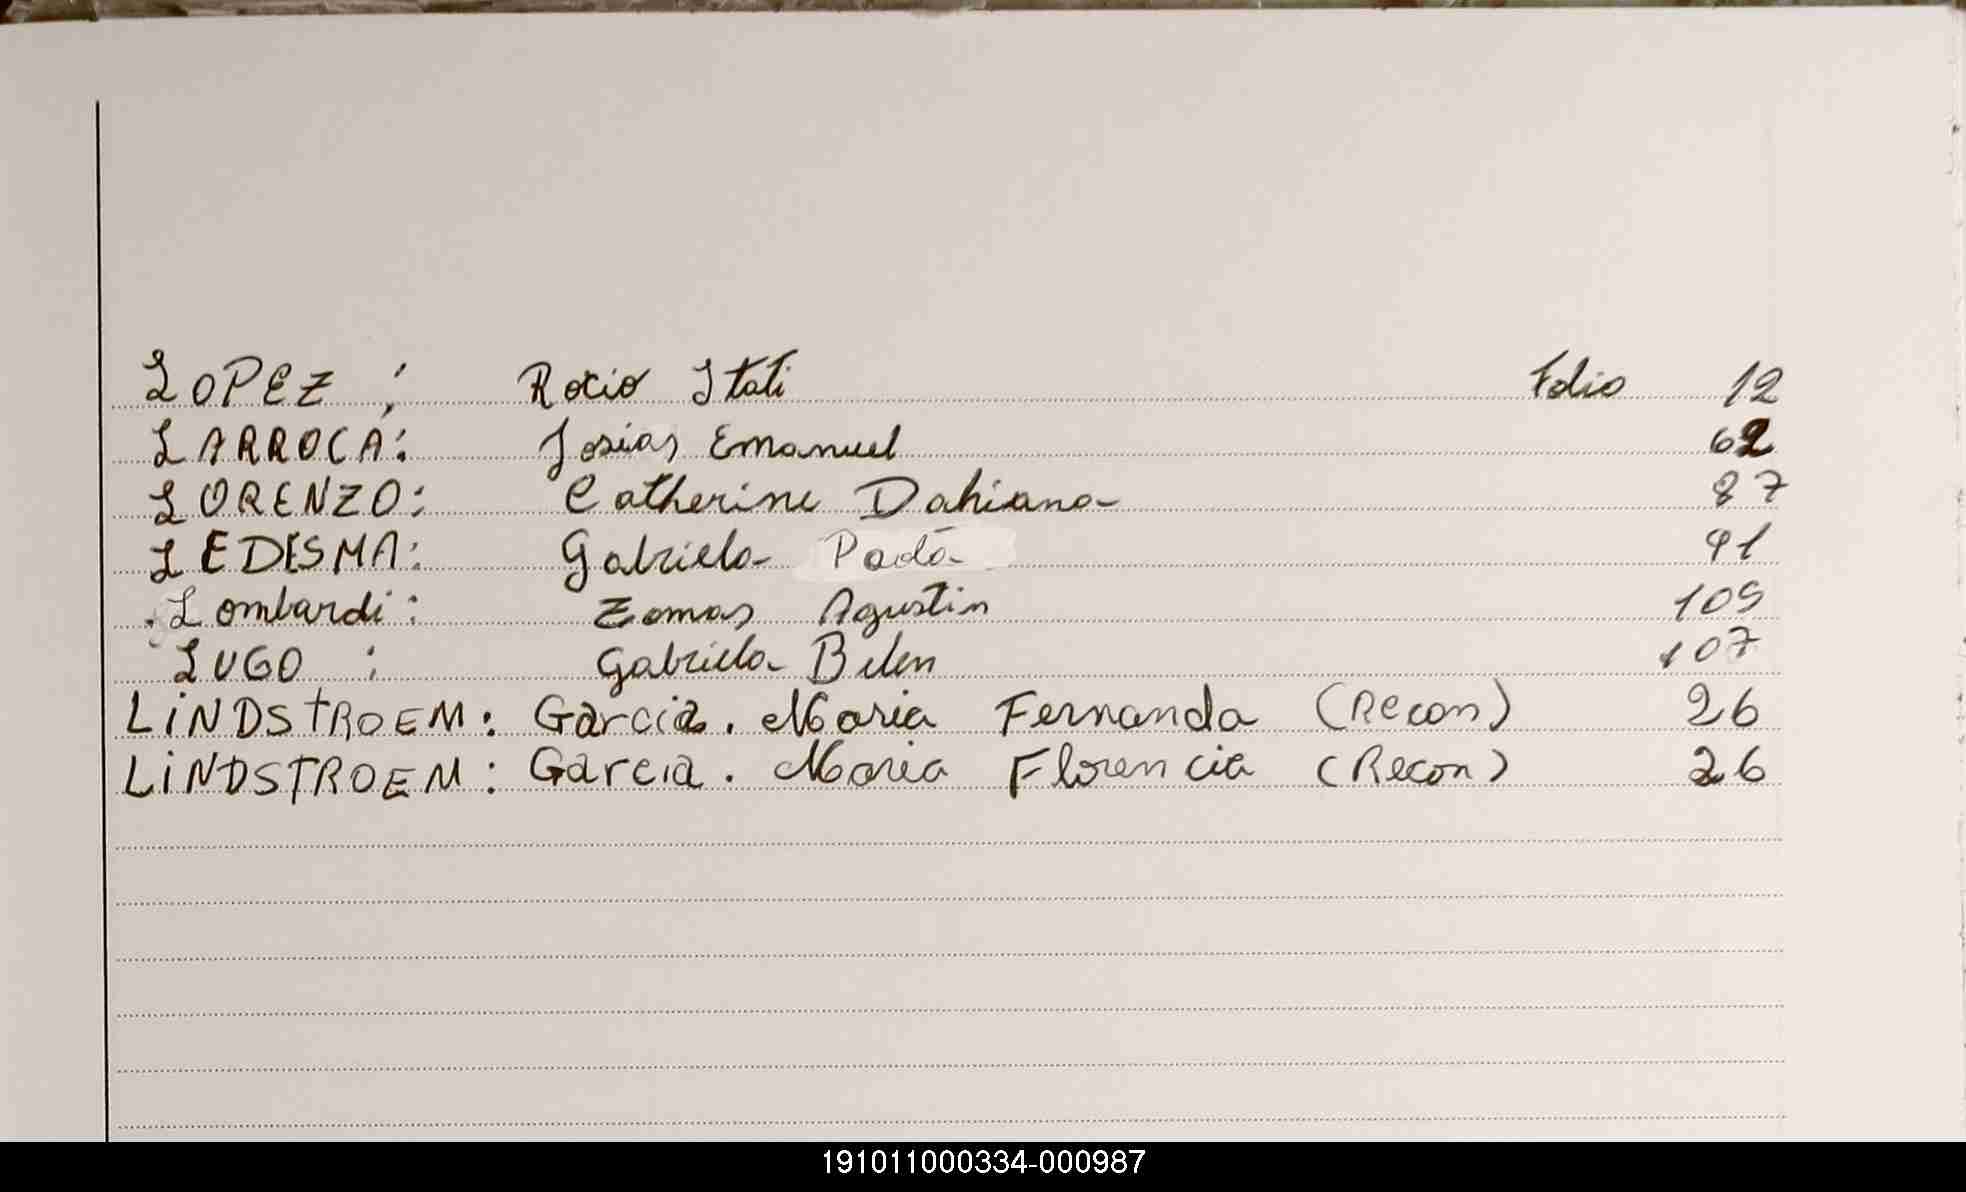 LOPEZ : Rocio Itati Folio 12
LARROCA: Josias Emanuel 62
LORENZO: Catherine Dahiana 87
LEDESMA: Gabriela 91
Lombardi: Tomas Agustin 105
LUGO : Gabriela Belen 107
LINDSTROEM: Garcia. Maria Fernanda (Recon) 26
LINDSTROEM: Garcia. Maria Florencia (Recon) 26
191011000334-000987